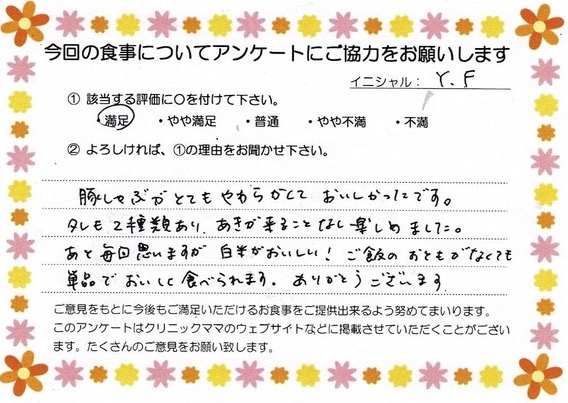 今回の食事についてアンケートにご協力をお願いします
イニシャル： Y.F
① 該当する評価に○を付けて下さい。
・満足 ・やや満足 ・普通 ・やや不満 ・不満
② よろしければ、①の理由をお聞かせ下さい。
豚しゃぶがとてもやわらかくて おいしかったです。
タレも2種類あり、あきが来ることなく楽しめました。
あと毎回思いますが 白米がおいしい！ ご飯のおともがなくても
単品でおいしく食べられます。 ありがとうございます
ご意見をもとに今後もご満足いただけるお食事をご提供出来るよう努めてまいります。
このアンケートはクリニックママのウェブサイトなどに掲載させていただくことがござい
ます。たくさんのご意見をお願い致します。